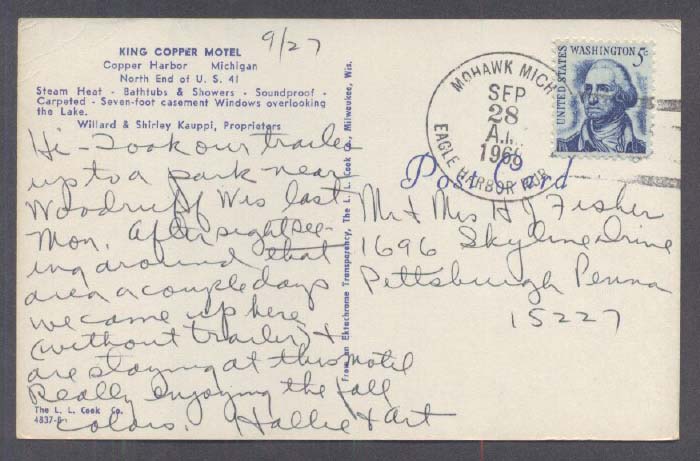 KING COPPER MOTEL
Copper Harbor Michigan
North End of U. S. 41
Steam Heat - Bathtubs & Showers - Soundproof -
Carpeted - Seven-foot casement Windows overlooking
the Lake.
Willard & Shirley Kauppi, Proprietors
9/27
Hi - Took our trailer
up to a park near
Woodruff Wis last
Mon. After sightsee-
ing around that
area a couple days
we came up here
(without trailer) &
are staying at this motel
Really enjoying the fall
colors. Hallie & Art
The L. L. Cook Co.
4837-B
From an Ektachrome Transparency, The L. L. Cook Co., Milwaukee, Wis.
Post Card
MOHAWK MICH
SEP
28
1969
EAGLE HARBOR RUR
UNITED STATES
WASHINGTON 5c
Mr & Mrs H J Fisher
1696 Skyline Drive
Pittsburgh Penna
15227